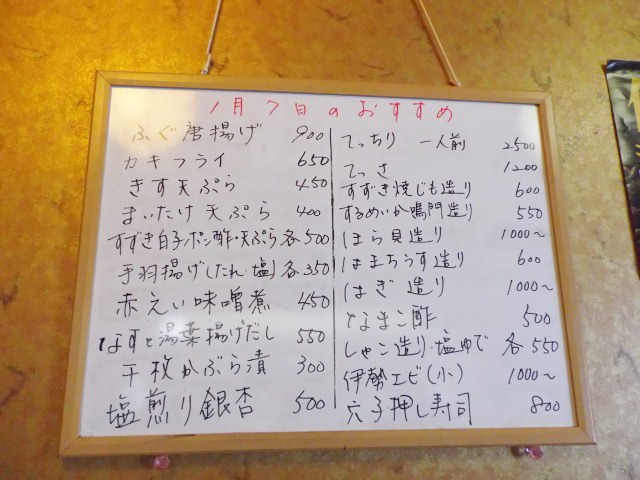 1月7日のおすすめ
ふぐ唐揚げ 900
カキフライ 650
きす天ぷら 450
まいたけ天ぷら 400
すずき白子ポン酢・天ぷら各500
手羽揚げ(たれ・塩)各350
赤えい味噌煮 450
なすと湯葉揚げだし 550
千枚かぶら漬 300
塩煎り銀杏 500
てっちり 一人前 2500
てっさ 1200
すずき焼じも造り 600
するめいか鳴門造り 550
ほら貝造り 1000〜
はまちうす造り 600
はぎ 造り 1000〜
なまこ酢 500
しゃこ造り・塩ゆで 各550
伊勢エビ(小) 1000〜
穴子押し寿司 800